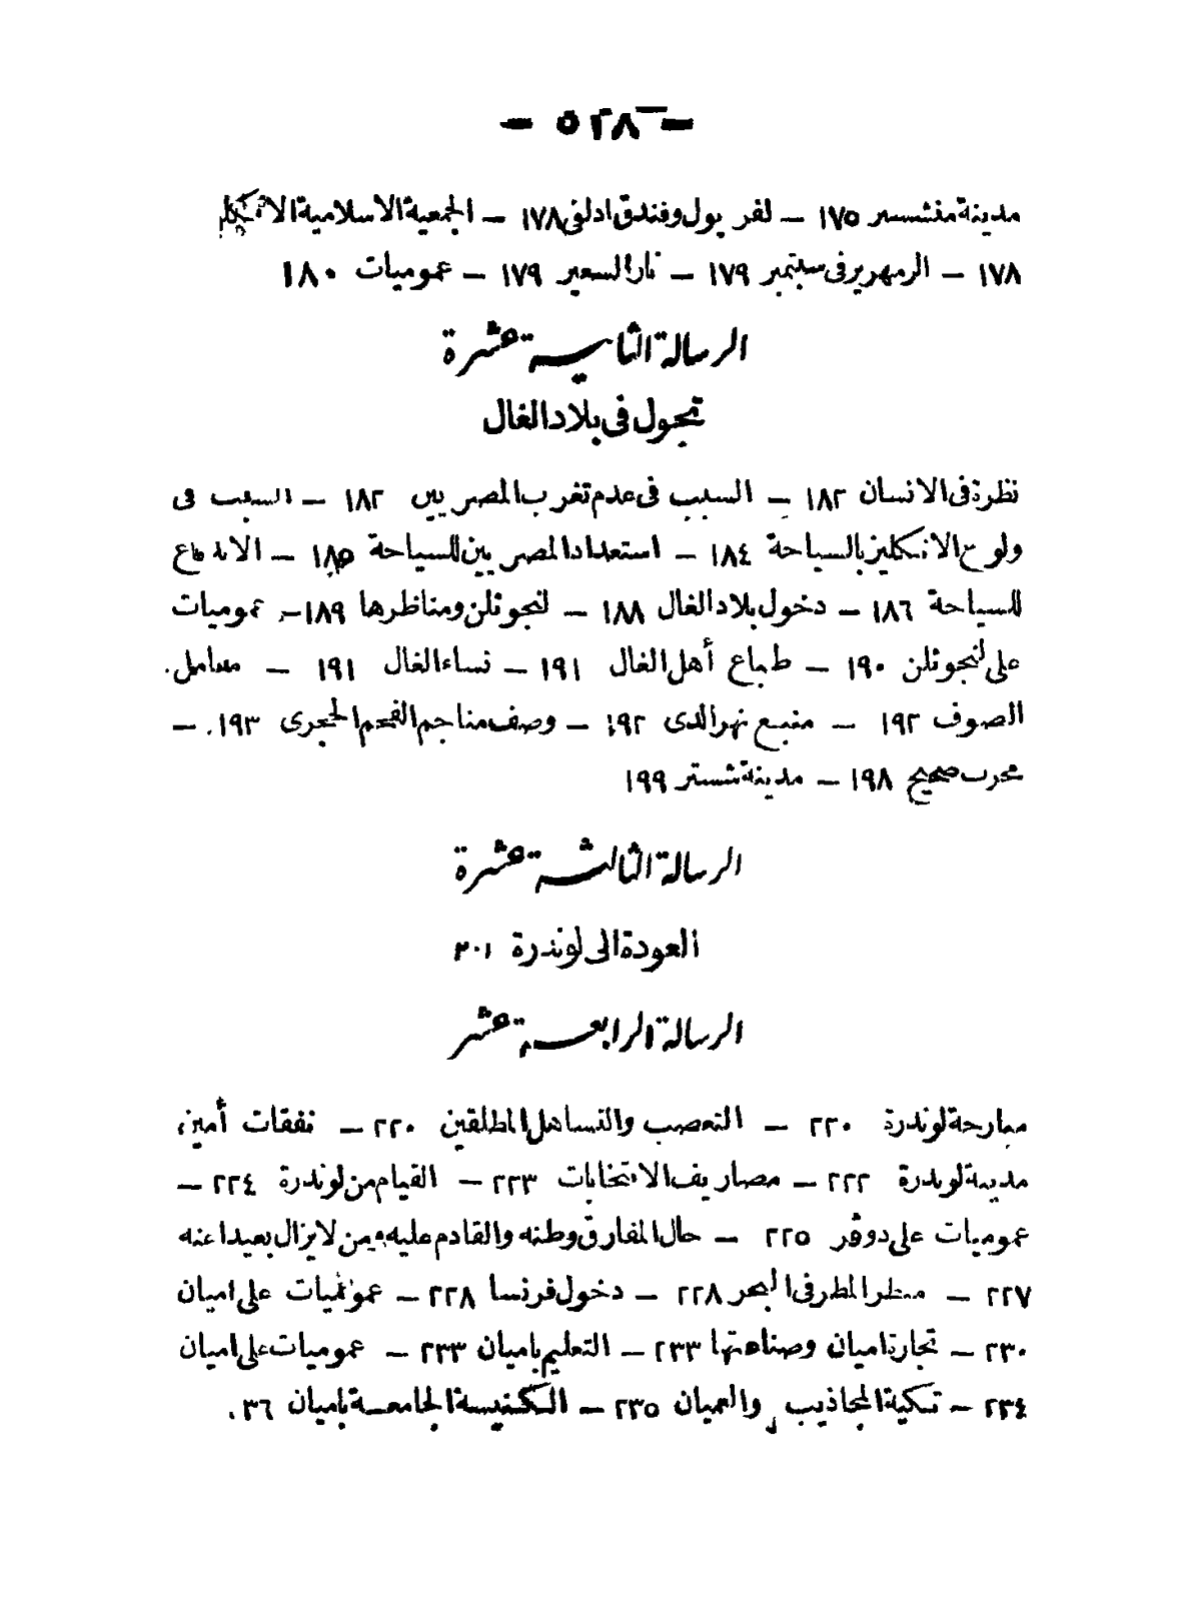 — ٥٢٨ —
مدينة منشستر ١٧٥ — لفربول وفندق ادلفي ١٧٨ — الجمعية الاسلامية الانكليزية
١٧٨ — الزمهرير فى سبتمبر ١٧٩ — نار السعير ١٧٩ — عموميات ١٨٠
الرسالة الثانية عشرة
تجول فى بلاد الغال
نظرة فى الانسان ١٨٢ — السبب فى عدم تغرب المصريين ١٨٢ — السبب فى
ولوع الانكليز بالسياحة ١٨٤ — استعداد المصريين للسياحة ١٨٥ — الاندفاع
للسياحة ١٨٦ — دخول بلاد الغال ١٨٨ — لنجوثلن ومناظرها ١٨٩ — عموميات
على لنجوثلن ١٩٠ — طباع أهل الغال ١٩١ — نساء الغال ١٩١ — معامل
الصوف ١٩٢ — منبع نهر الدى ١٩٢ — وصف مناجم الفحم الحجرى ١٩٣ —
مجرب صحيح ١٩٨ — مدينة شستر ١٩٩
الرسالة الثالثة عشرة
العودة الى لوندرة ٢٠١
الرسالة الرابعة عشر
مبارحة لوندرة ٢٢٠ — التعصب والتساهل المطلقين ٢٢٠ — نفقات أمين
مدينة لوندرة ٢٢٢ — مصاريف الانتخابات ٢٢٣ — القيام من لوندرة ٢٢٤ —
عموميات على دوفر ٢٢٥ — حال المفارق وطنه والقادم عليه ومن لايزال بعيدا عنه
٢٢٧ — منظر المطر فى البحر ٢٢٨ — دخول فرنسا ٢٢٨ — عموميات على اميان
٢٣٠ — تجارة اميان وصناعتها ٢٣٣ — التعليم باميان ٢٣٣ — عموميات على اميان
٢٣٤ — تكية المجاذيب والعميان ٢٣٥ — الكنيسة الجامعة باميان ٣٦.